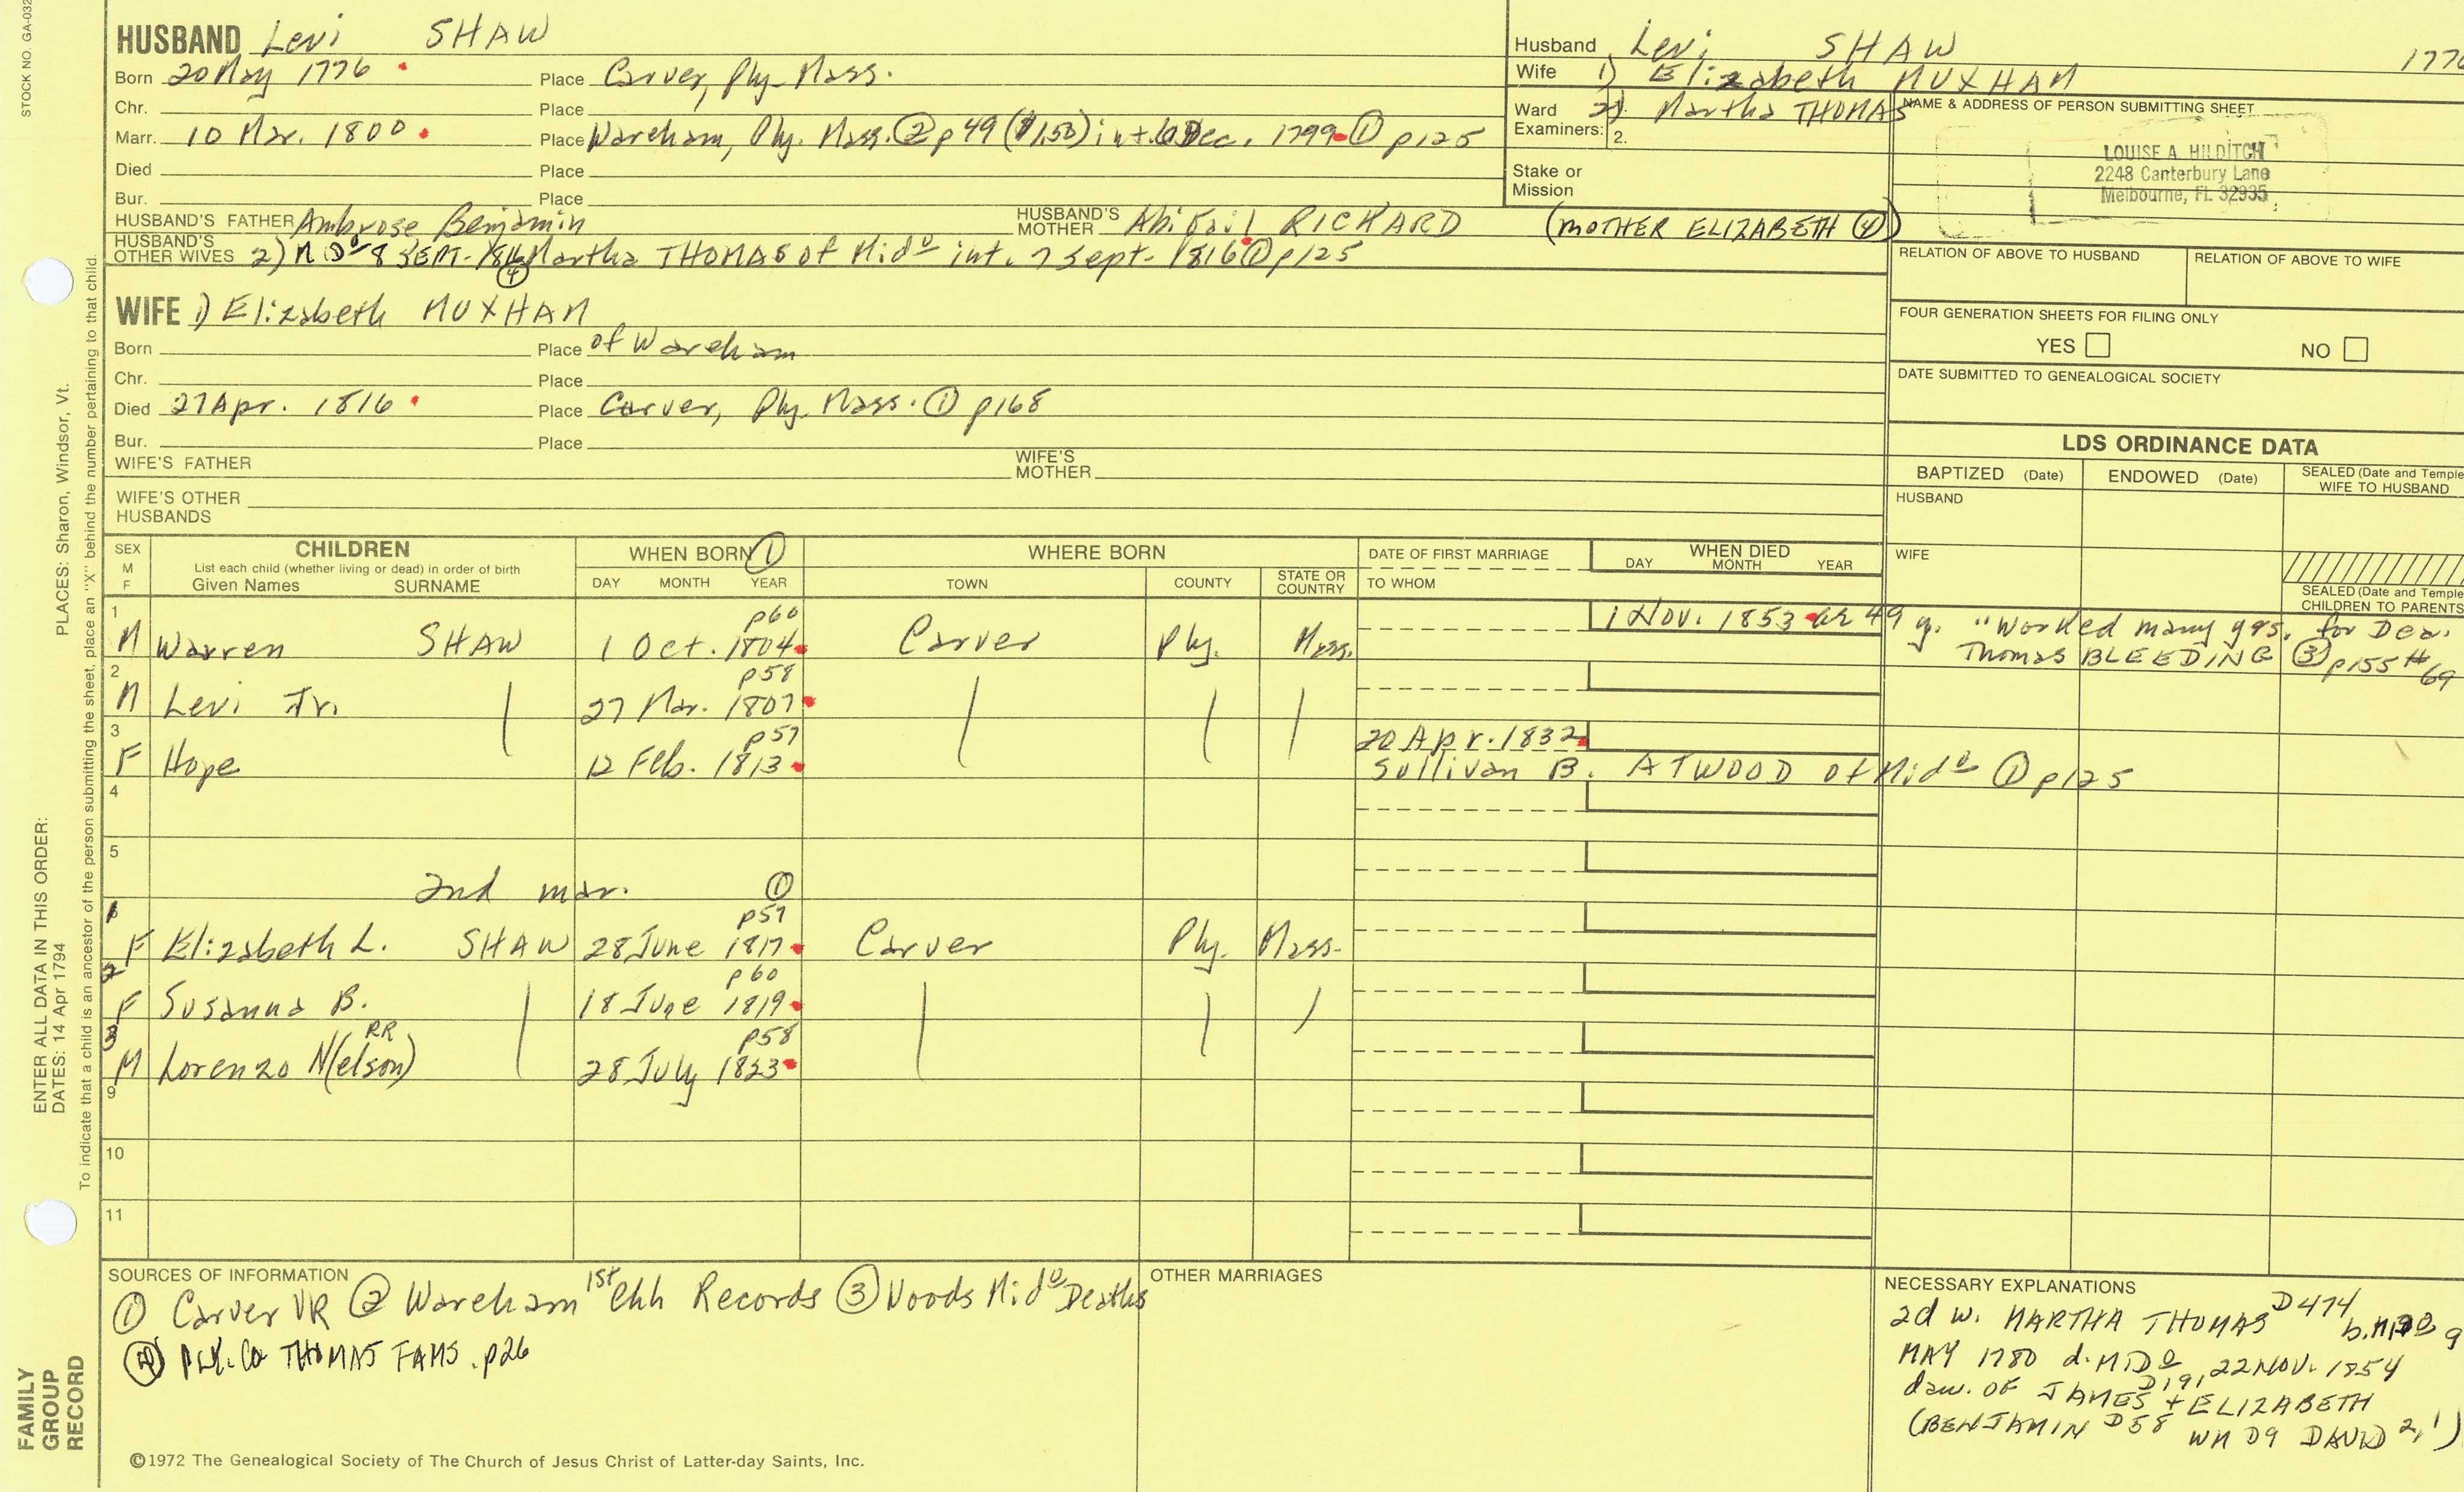 STOCK NO. GA-032
HUSBAND Levi SHAW
Born 20 May 1776 Place Carver, Ply. Mass.
Chr. Place
Marr. 10 Mar. 1800 Place Wareham, Ply. Mass. ② p 49 ($1.50) int. Dec. 1799 ① p125
Died Place
Bur. Place
HUSBAND'S FATHER Ambrose Benjamin HUSBAND'S MOTHER Abigail RICKARD (MOTHER ELIZABETH ④)
HUSBAND'S OTHER WIVES 2) MDº 8 SEPT. 1816 ④ Martha THOMAS of Midº int. 7 Sept. 1816 ① p125
WIFE 1) Elizabeth MUXHAM
Born Place of Wareham
Chr. Place
Died 27 Apr. 1816 Place Carver, Ply. Mass. ① p168
Bur. Place
WIFE'S FATHER WIFE'S MOTHER
WIFE'S OTHER HUSBANDS
Husband Levi SHAW 1776
Wife 1) Elizabeth MUXHAM
Ward 2) Martha THOMAS
Examiners: 2.
Stake or
Mission
NAME & ADDRESS OF PERSON SUBMITTING SHEET
LOUISE A. HILDITCH
2248 Canterbury Lane
Melbourne, FL 32935
RELATION OF ABOVE TO HUSBAND RELATION OF ABOVE TO WIFE
FOUR GENERATION SHEETS FOR FILING ONLY
YES NO
DATE SUBMITTED TO GENEALOGICAL SOCIETY
LDS ORDINANCE DATA
BAPTIZED (Date) ENDOWED (Date) SEALED (Date and Temple
WIFE TO HUSBAND
HUSBAND
WIFE
SEALED (Date and Temple
CHILDREN TO PARENTS
SEX
M
F
CHILDREN
List each child (whether living or dead) in order of birth
Given Names SURNAME
WHEN BORN ①
DAY MONTH YEAR
WHERE BORN
TOWN COUNTY STATE OR COUNTRY
DATE OF FIRST MARRIAGE
TO WHOM
WHEN DIED
DAY MONTH YEAR
1 p60 1 Nov. 1853 ae 49 y. "Worked many yrs. for Dea.
M Warren SHAW 1 Oct. 1804 Carver Ply. Mass. Thomas BLEEDING ③ p155 #69
2 p58
M Levi Jr. 27 Mar. 1807
3 p57 20 Apr. 1832
F Hope 12 Feb. 1813 Sullivan B. ATWOOD of Midº ① p125
4
5
2nd mar. ①
p57
F Elizabeth L. SHAW 28 June 1817 Carver Ply. Mass.
2 p60
F Susanna B. 18 June 1819
3 RR p58
M Lorenzo N(elson) 28 July 1823
9
10
11
SOURCES OF INFORMATION
① Carver VR ② Wareham 1st Chh Records ③ Woods Midº Deaths
④ PLY. Co THOMAS FAMS. p26
OTHER MARRIAGES
NECESSARY EXPLANATIONS
2d w. MARTHA THOMAS D474 b. 9
MAY 1780 d. MIDº 22 NOV. 1854
daw. OF JAMES D191 + ELIZABETH
(BENJAMIN D58 WM D9 DAVID 2, 1)
©1972 The Genealogical Society of The Church of Jesus Christ of Latter-day Saints, Inc.
PLACES: Sharon, Windsor, Vt.
To indicate that a child is an ancestor of the person submitting the sheet, place an "X" behind the number pertaining to that child.
ENTER ALL DATA IN THIS ORDER:
DATES: 14 Apr 1794
FAMILY
GROUP
RECORD